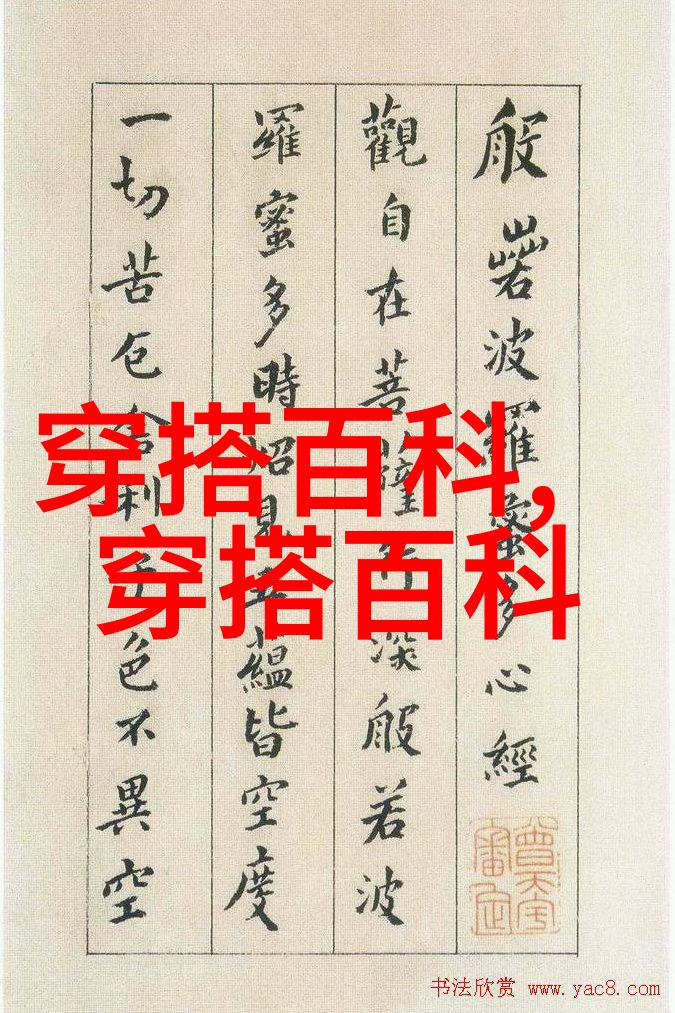 般若波羅蜜多心經
觀自在菩薩行深般若波
羅蜜多時照見五蘊皆空度
一切苦厄舍利子色不異空
穿搭百科,
穿搭百科
书法欣赏 www.yac8.com